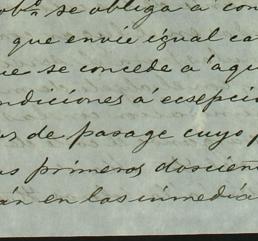 obⁿ se obliga á con
que envie igual ca
ue se concede a' aqu
ndiciones á ecsepció
s de pasage cuyo p
as primeros doscien
án en las inmedia